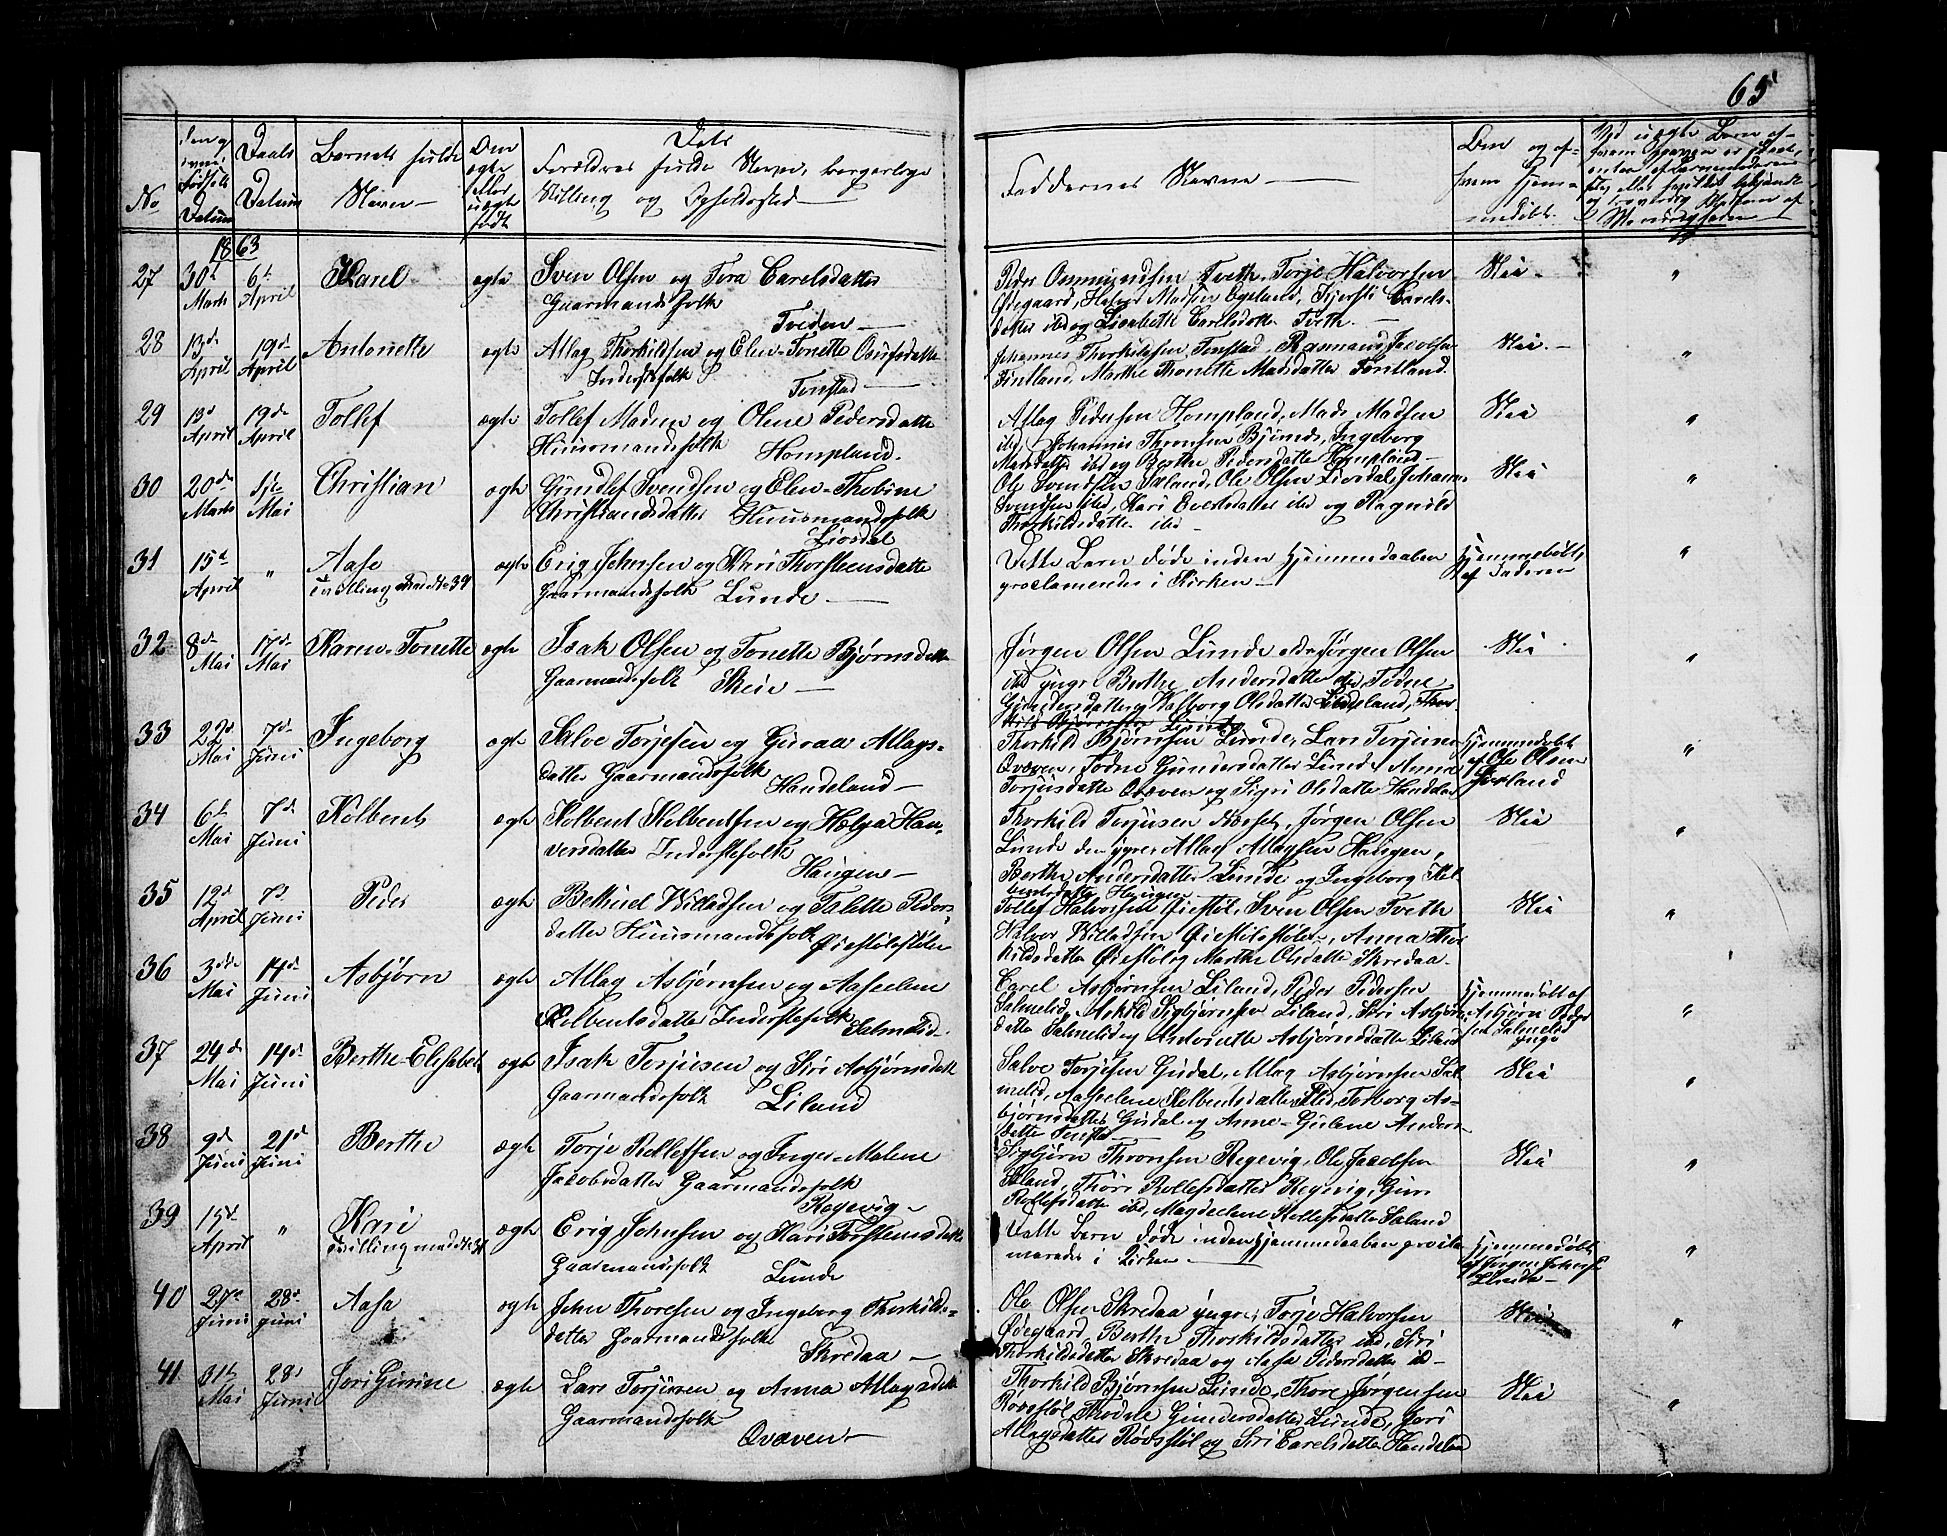 65
No
Fødsels
Datum
Daabs
Datum
Barnets fulde
Navn
Om
ægte
eller
uægte
født
Dets
Forældres fulde Navne, borgerlige
Stilling og Opholdssted
Faddernes Navne
Om og af
hvem hjem-
medøbt
1863
27 30te Marts 6te April Karel ægte Sven Olsen og Tora Carelsdatter
Gaarmandsfolk
Tveden
Peder Osmundsen Tveth, Torje Halvorsen
Ødegaard, Halvor Madsen Egeland, Kjersti Carels-
datter ibd og Lisabeth Carelsdatter Tveth.
Nei
"
28 13de April 19de April Antonette ægte Atlag Thorkildsen og Elen-Tonette Osufsdatte
Inderstefolk
Tonstad
Johannes Thorkildsen Tonstad, Rasmus Jacobsen
Fintland, Marthe Thonette Madsdatter Fintland.
Nei
"
29 13d April 19de April Tollef ægte Tollef Madsen og Olene Pedersdatte
Huusmandsfolk
Hompland.
Atlag Pedersen Hompland, Mads Madsen
ibd, Johannes Thronsen Bjunes, Ingeborg
Madsdatter ibd og Berthe Pedersdatte Hompland
Nei
"
30 20de Marts Mai Christian ægte Gundlef Svendsen og Elen-Thobine
Christiansdatter Huusmandsfolk
Liosdal
Ole Svendsen Øeland, Ole Olsen Liosdal, Johann
Svendsen ibd, Kari Evertsdatter ibd og Ragnild
Thorkildsdatte ibd
Nei
"
31 15d April " Aase
Tvilling med No 39
ægte Erig Johnsen og Kari Thorsteensdatte
Gaarmandsfolk Lunde
Dette Barn døde inden Hjemmedaaben
proclameredes i Kirken
Hjemmedøbt
af Faderen
"
32 8de Mai 17de Mai Karen-Tonette ægte Isak Olsen og Tonette Bjørnsdatte
Gaarmandsfolk Skeie
Jørgen Olsen Lunde eldr Jørgen Olsen
ibd yngr Berthe Andersdatter ibd, Todne
Gundersdatter og Valborg Olsdatter Lindeland, Thor-
kild Bjørnsen Lunde
Nei
"
33 22d Mai 7de Juni Ingeborg ægte Salve Torjesen og Guraa Atlags-
datter Gaarmandsfolk
Handeland
Thorkild Bjørnsen Lunde, Lars Torjusen
Qvæven, Todne Gundersdatter Lunde, Anna
Torjusdatte Qvæven og Sigri Olsdatte Handeland
Hjemmedøbt
af Ole Olsen
"
34 6te Mai 7de Juni Kolbent ægte Kolbent Kolbentsen og Helga Han-
versdatter Inderstefolk
Haugen
Thorkild Torjusen Josset, Jørgen Olsen
Lunde den yngre, Atlag Atlagsen Haugen,
Berthe Andersdatter Lunde og Ingeborg Kol-
bentsdatter Haugen
Nei
"
35 12d April 7d Juni Peder ægte Bethuel Willadsen og Talette Peders
datter Huusmandsfolk Øiestølstølen
Tollef Halvorsen Øiestøl, Sven Olsen Tveth
Halvor Willadsen Øiestølstølen, Anna Thor
kildsdatter Øiestøl og Marthe Olsdatter Skredaa
Nei
"
36 3die Mai 14de Juni Asbjørn ægte Atlag Asbjørnsen og Aaselene
Kolbentsdatter Inderstefolk
Salmelid
Carel Asbjørnsen Liland, Peder Pedersen
Salmelid, Askild Sigbjørnsen Liland, Siri Asbjørns
datter Salmelid og Antonette Asbjørnsdatte Liland
Hjemmedøbt af
Asbjørn Peder
sen Salmelid
yngr
"
37 24de Mai 14de Juni Berthe-Elisabet ægte Isak Torjusen og Siri Asbjørnsdatte
Gaarmandsfolk Liland
Salve Torjesen Gudal, Atlag Asbjørnsen Sal-
melid, Aaselene Kolbentsdatter ibd, Torborg As-
bjørnsdatter Gudal og Anne-Gulene Anders-
datte Tonstad
Nei
"
38 9de Juni 21de Juni Berthe ægte Torje Rollefsen og Inger-Malene
Jacobsdatter Gaarmandsfolk
Regevig
Sigbjørn Thronsen Regevig, Ole Jacobsen
Øeland, Thore Rollefsdatter Regevig, Guri
Rollefsdatte ibd, Magdelene Rollefsdatte Haland
Nei
"
39 15de April " Kari
Tvilling med No 31
ægte Erig Johnsen og Kari Torsteensdatte
Gaarmandsfolk
Lunde
Dette Barn døde inden Hjemmedaaben procla-
meredes i Kirken
Hjemmedøbt
af Jørgen
Lunde
"
40 27de Juni 28de Juni Aasa ægte John Thoresen og Ingeborg Thorkilds-
datter Gaarmandsfolk
Skredaa
Ole Olsen Skredaa yngr, Torje Halvorsen
Ødegaard, Berthe Thorkildsdatter ibd, Siri
Thorkildsdatter Skredaa og Aasa Pedersdatter ibd
Nei
"
41 31te Mai 28d Juni Jori Gurine ægte Lars Torjusen og Anna Atlagsdatte
Gaarmandsfolk
Qvæven
Thorkild Bjørnsen Lunde, Thore Jørgensen
Røsstøl, Thodne Gundersdatter Lunde, Jori
Atlagsdatter Røsstøl og Siri Carelsdatter Handeland
Nei
"